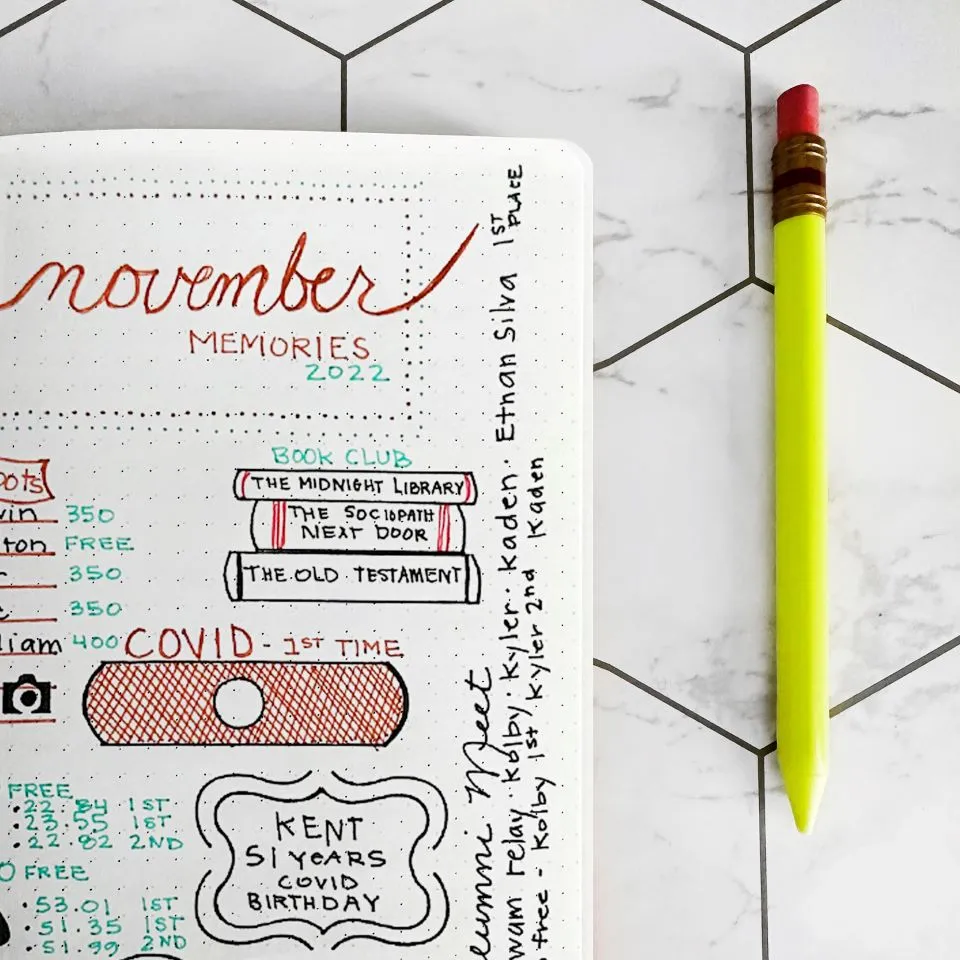 november
MEMORIES
2022
BOOK CLUB
THE MIDNIGHT LIBRARY
THE SOCIOPATH
NEXT DOOR
THE OLD TESTAMENT
350
FREE
350
350
400
COVID - 1ST TIME
FREE
. 22.84 1ST
. 23.55 1ST
. 22.82 2ND
FREE
. 53.01 1ST
. 51.35 1ST
. 51.99 2ND
KENT
51 YEARS
COVID
BIRTHDAY
Meet
relay. Kolby. Kyler. Kaden. Ethan Silva 1ST PLACE
free - Kolby 1st Kyler 2nd Kaden